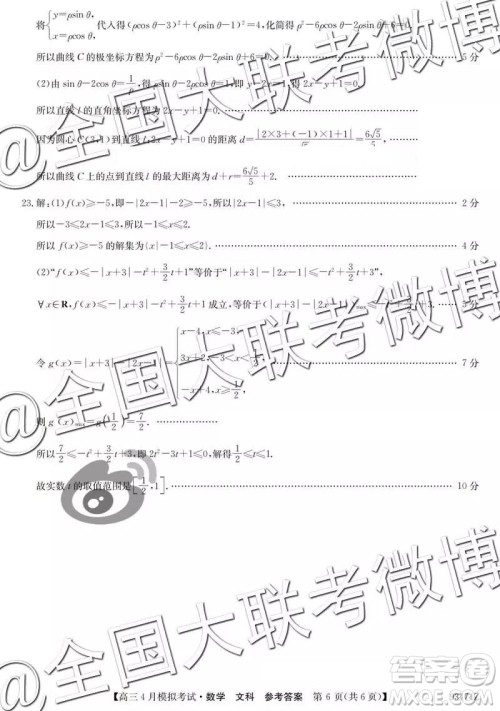 将{y=ρsin θ, x=ρcos θ, 代入得(ρcos θ-3)²+(ρsin θ-1)²=4,化简得ρ²-6ρcos θ-2ρsin θ+6=0.
所以曲线 C 的极坐标方程为 ρ²-6ρcos θ-2ρsin θ+6=0. 5 分
(2)由 sin θ-2cos θ=1/ρ,得 ρsin θ-2ρcos θ=1,即 y-2x=1,得 2x-y+1=0.
所以直线 l 的直角坐标方程为 2x-y+1=0.
因为圆心 C(3,1)到直线 l:2x-y+1=0 的距离 d=|2×3+(-1)×1+1|/√5=6√5/5
所以曲线 C 上的点到直线 l 的最大距离为 d+r=6√5/5+2.
23.解:(1)f(x)≥-5,即-|2x-1|-2≥-5,所以|2x-1|≤3, 2 分
所以-3≤2x-1≤3,所以-1≤x≤2.
所以 f(x)≥-5 的解集为{x|-1≤x≤2}. 4 分
(2)“f(x)≤-|x+3|-t²+3/2t+1”等价于“|x+3|-|2x-1|≤-t²+3/2t+3”,
∀x∈R,f(x)≤-|x+3|-t²+3/2t+1 成立,等价于(|x+3|-|2x-1|)max≤-t²+3/2t+3, 5 分
令 g(x)=|x+3|-|2x-1|={x-4,x≤-3, 3x+2,-3<x<1/2, -x+4,x≥1/2, 7 分
则 g(x)max=g(1/2)=7/2.
所以7/2≤-t²+3/2t+3,即 2t²-3t+1≤0,解得1/2≤t≤1.
故实数 t 的取值范围是[1/2,1]. 10 分
@全国大联考微博
@全国大联考微博
【高三4月模拟考试·数学 文科 参考答案 第 6 页(共 6 页)】